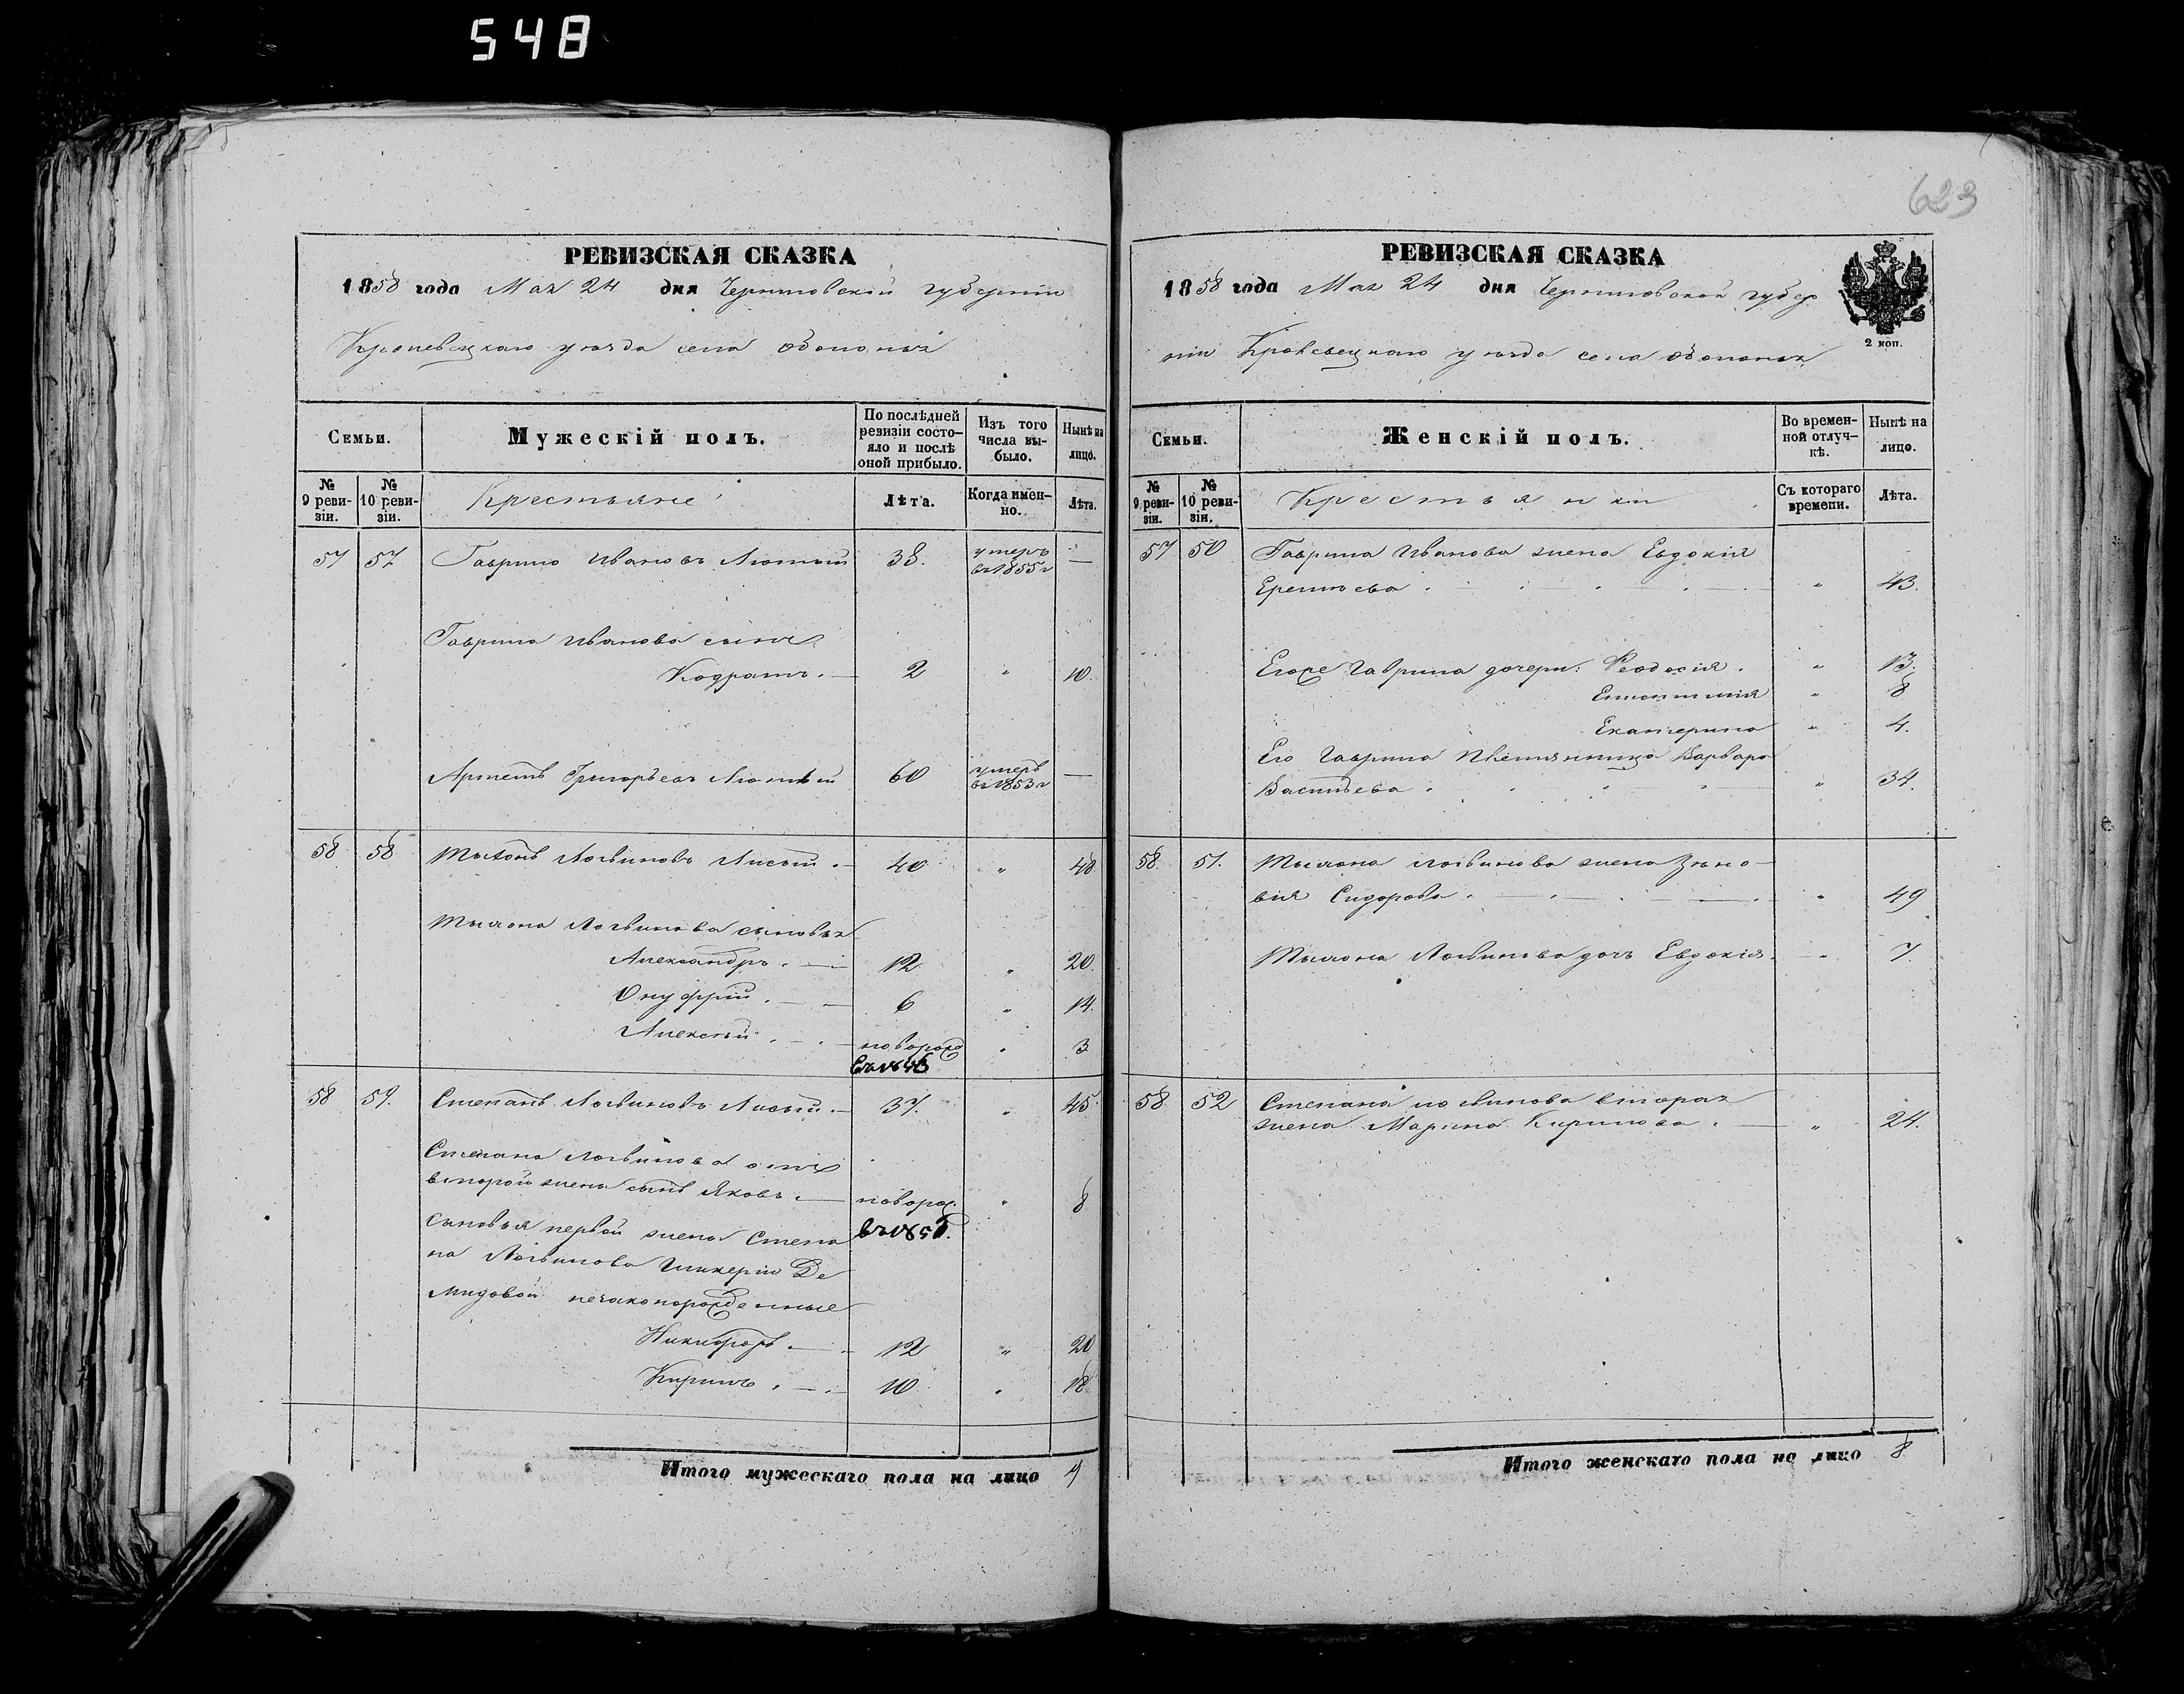 548
РЕВИЗСКАЯ СКАЗКА
1858 года Мая 24 дня Черниговской губерніи
Кролевецкаго уѣзда села Оболонья
Семьи.
Мужескій полъ.
По послѣдней ревизіи состояло и послѣ оной прибыло.
Изъ того числа выбыло.
Нынѣ на лицо.
№ 9 ревизіи.
№ 10 ревизіи.
Крестьяне
Лѣта.
Когда именно.
Лѣта.
57 57 Гаврило Ивановъ Лютый 38. умеръ въ 1855 г —
Гаврила Иванова сынъ
Кодратъ. — 2 " 10.
Артемъ Григорьевъ Лютый 60 умеръ въ 1853 г —
58 58 Логвиновъ Лисый. — 40 " 48
Логвинова сыновья
Александръ. — 12 " 20.
Онуфрій. — 6 " 14.
Алексѣй. — новорожд " 3
58 59. Степанъ Логвиновъ Лисый. — 37. " 45.
Степана Логвинова отъ
второй жены сынъ Яковъ. — новорож. " 8
въ 1850.
Сыновья первой жены Степа
на Логвинова Гликеріи Де
мидовой незаконорожденные
Никифоръ. — 12 " 20
Кирило. — 10 " 18.
Итого мужескаго пола на лицо 9
623
РЕВИЗСКАЯ СКАЗКА
1858 года Мая 24 дня Черниговской губер
ніи Кролевецкаго уѣзда села Оболонья
2 коп.
Семьи.
Женскій полъ.
Во временной отлучкѣ.
Нынѣ на лицо.
№ 9 ревизіи.
№ 10 ревизіи.
Крестьянки
Съ котораго времени.
Лѣта.
57 50 Гаврила Иванова жена Евдокія
" 43.
Егоже Гаврила дочери: Феодосія. " 13.
" 8
Екатерина " 4.
Его Гаврила племянница Варвара
Васильева " 34.
58. 51. Логвинова жена Зѣно-
вія Сидорова. — " 49
Логвинова дочь Евдокія. — " 7.
58 52 Степана Логвинова вторая
жена Марина Кирилова. — " 24.
Итого женскаго пола на лицо 8